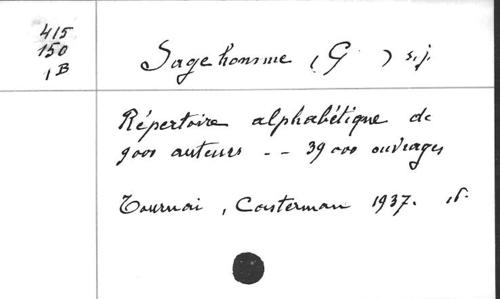 415
150
1B
Sagehomme (G ) s.j.
Répertoire alphabétique de
9000 auteurs -- 39000 ouvrages
Tournai, Casterman 1937.